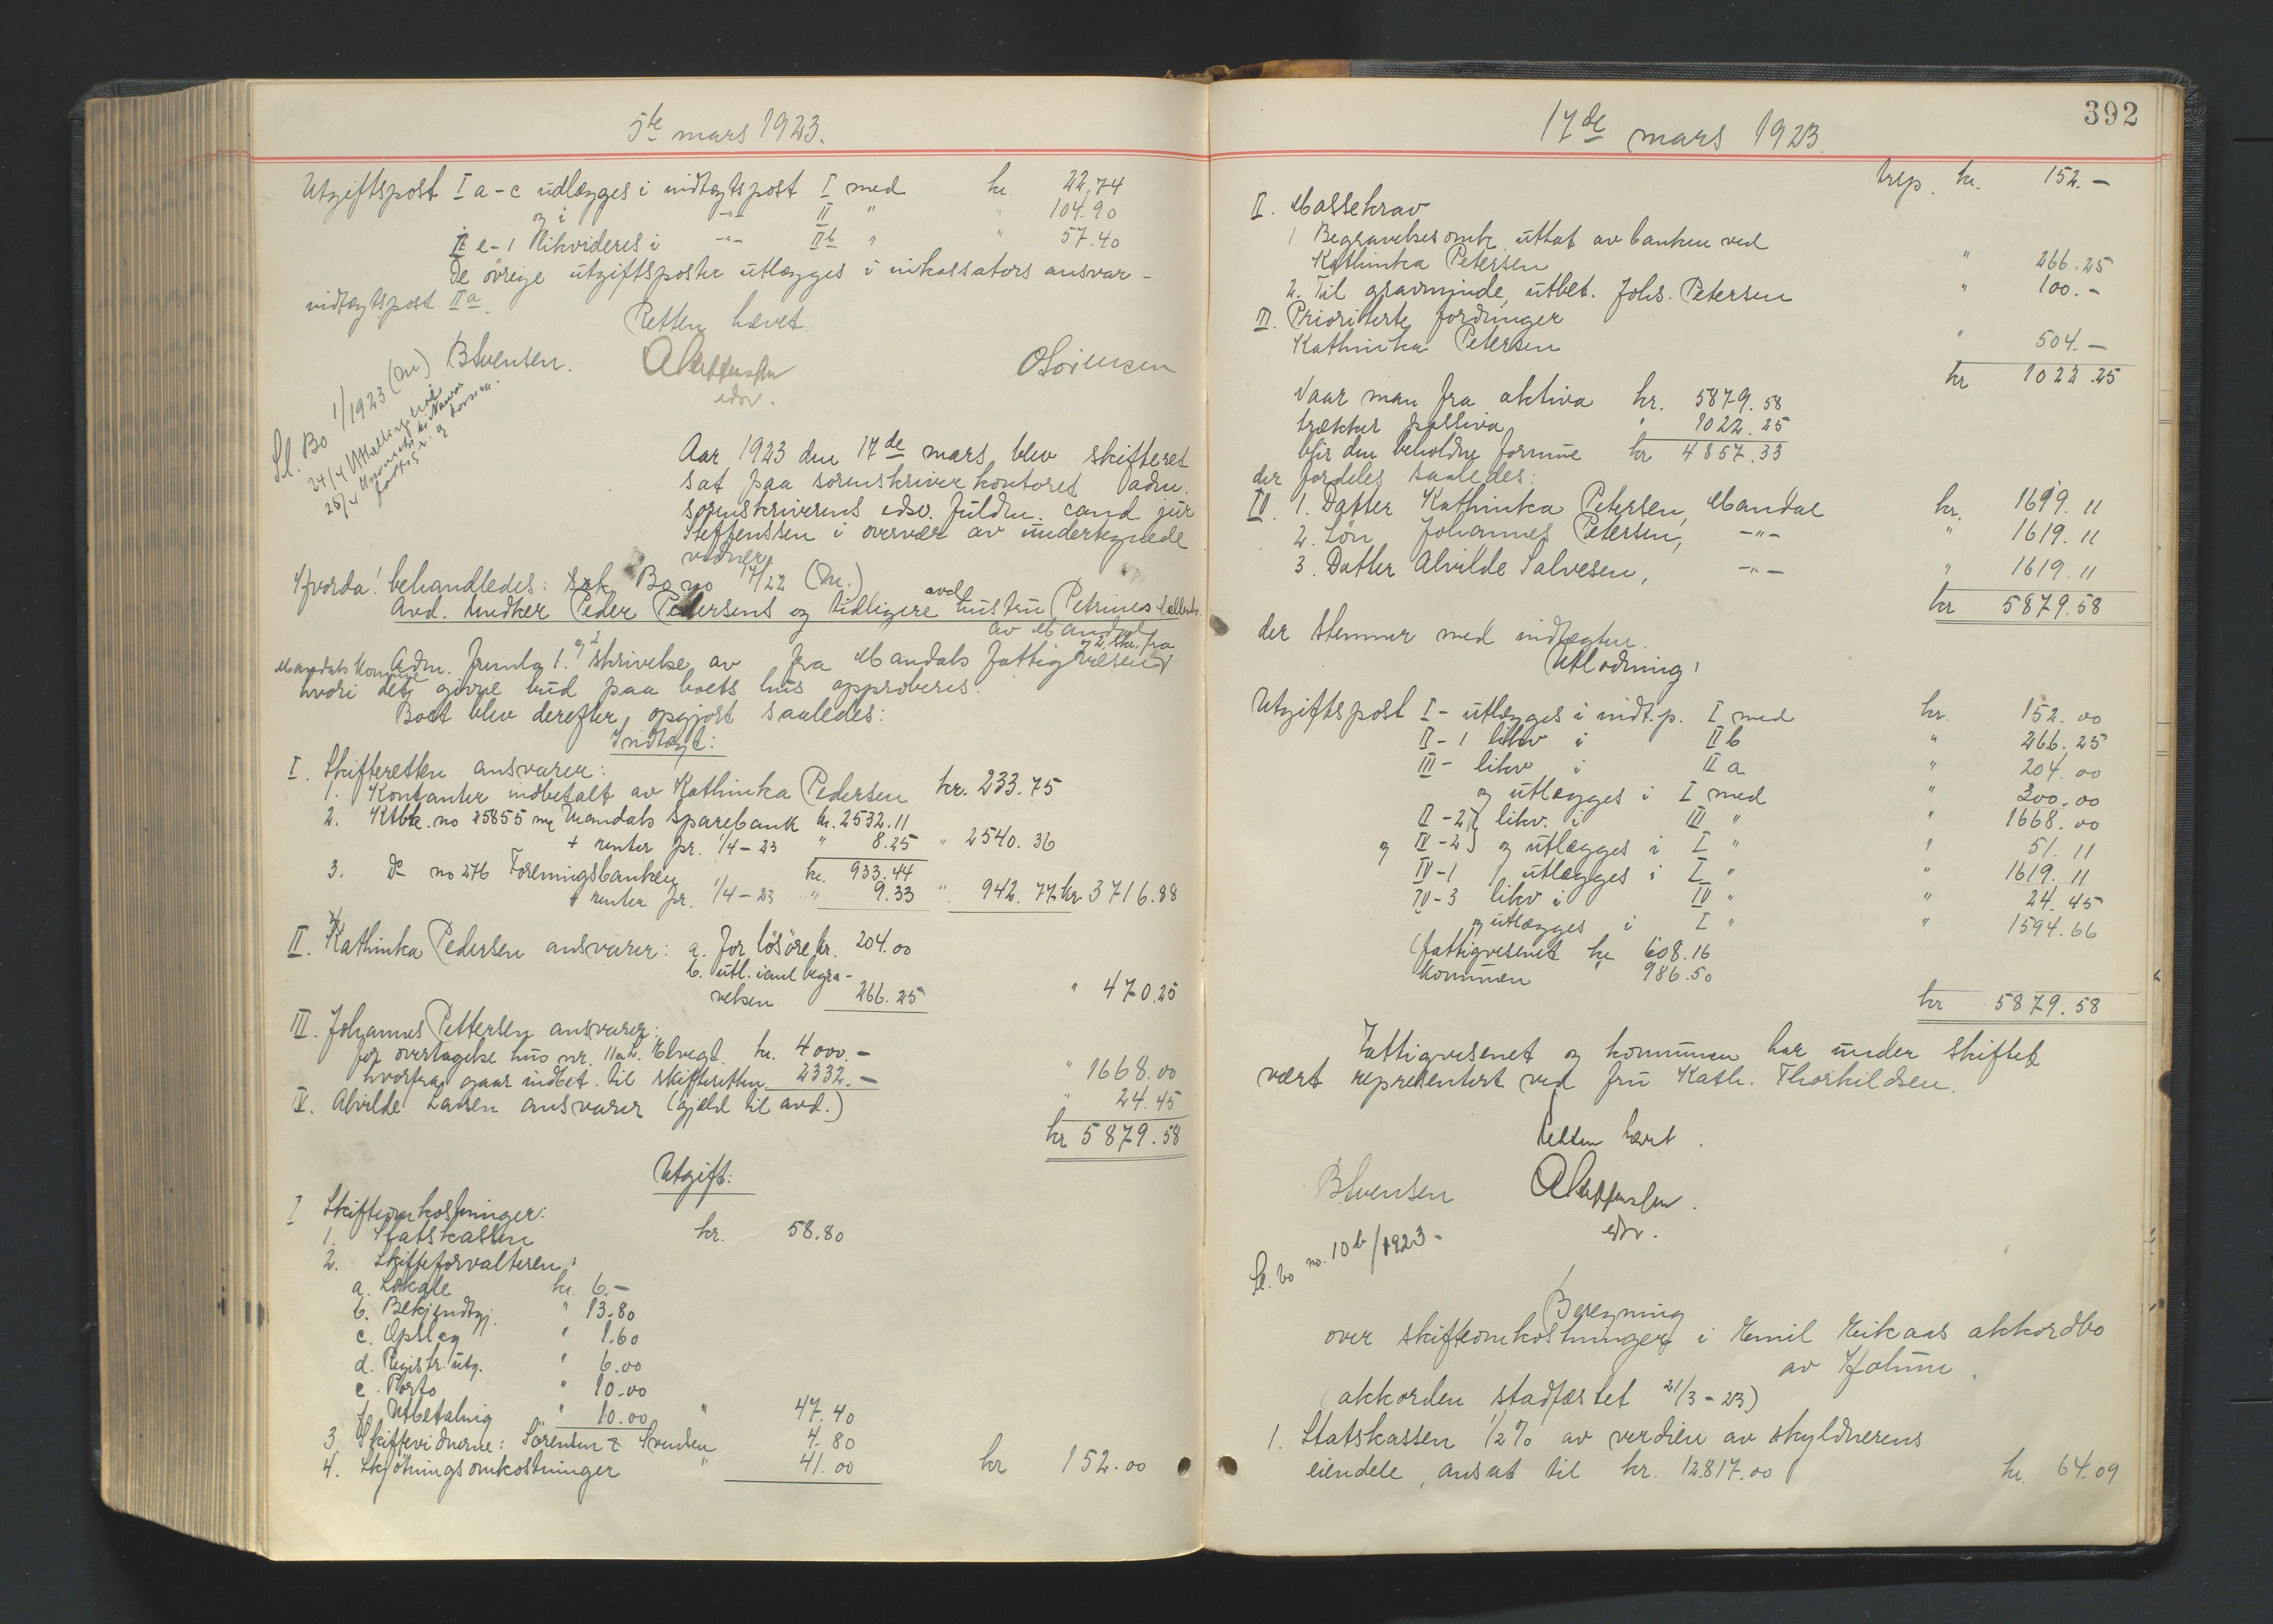 5te mars 1923.
Utgiftspost I a-c utlægges i indtægtspost I med kr. 22.74
og i -"- II " " 104.90
II e-1 likvideres i -"- IIb " " 57.40
De övrige utgiftsposter utlægges i inkassators ansvar -
indtægtspost IIa.
Retten hævet.
BSvensen. ASteffenssen OSörensen
edsv.
Sl. Bo 1/1923 (M)
24/4 Utbetaling
25/4
Aar 1923 den 17de mars blev skifteret
sat paa sorenskriverkontoret adm.
sorenskriverens edsv. fuldm. cand jur
Steffenssen i overvær av undertegnede
vidner.
Hvorda! behandledes: Bo no 17/22 (M.)
Avd. Snedker Peder Petersens og tidligere avd. hustru Petrines
av Mandal
Adm. fremla 1. og 2 skrivelse av fra Mandals fattigvesen og 2. skr. fra
Mandals kommune
hvori det givne bud paa boets hus approberes.
Boet blev derefter opgjort saaledes:
Indtægt:
I. Skifteretten ansvarer:
1. Kontanter indbetalt av Kathinka Pedersen kr. 233.75
2. Ktbk. no 25855 Mandals Sparebank kr. 2532.11
+ renter pr. 1/4-23 " 8.25 " 2540.36
3. Do no 276 Foreningsbanken kr. 933.44
+ renter pr. 1/4-23 " 9.33 " 942.77 kr 3716.88
II. Kathinka Pedersen ansvarer: a. for lösöre kr. 204.00
b. utl. i anl begra-
velsen 266.25 " 470.25
III. Johannes Pettersen ansvarer:
for overtagelse hus nr. 11a2. Elvegt. kr. 4000.-
hvorfra gaar indbet. til skifteretten 2332.- " 1668.00
IV. Alvilde Larsen ansvarer (gjæld til avd.) " 24.45
kr 5879.58
Utgift:
I Skifteomkostninger:
1. Statskassen kr. 58.80
2. Skifteforvalteren:
a. Lokale kr. 6.-
b. Bekjendtgj. " 13.80
c. Opslag " 1.60
d. Registr. utg. " 6.00
e. Porto " 10.00
f. Utbetaling " 10.00 " 47.40
3. Skiftevidnerne: Sörensen & Svensen 4.80
4. Skjötningsomkostninger " 41.00 kr 152.00
392
17de mars 1923.
trsp. kr. 152.-
II. Massekrav
1. Begravelsesomk. uttat av banken ved
Kathinka Petersen " 266.25
2. Til gravminde, utbet. Johs. Petersen " 100.-
III. Prioriterte fordringer
Kathinka Petersen " 504.-
kr 1022.25
Naar man fra aktiva kr. 5879.58
trækker passiva " 1022.25
blir den beholdne formue kr 4857.33
der fordeles saaledes:
IV. 1. Datter Kathinka Petersen, Mandal kr. 1619.11
2. Sön Johannes Petersen, -"- " 1619.11
3. Datter Alvilde Salvesen, -"- " 1619.11
kr 5879.58
der stemmer med indtægten.
Utlodning:
Utgiftspost I - utlægges i indt.p. I med kr. 152.00
II-1 likv i IIb " 266.25
III- likv i II a " 204.00
og utlægges i I med " 300.00
II-2 } likv. i III " " 1668.00
og IV-2 } og utlægges i I " " 51.11
IV-1 utlægges i I " " 1619.11
IV-3 likv i IV " " 24.45
og utlægges i I " " 1594.66
(fattigvesenet kr 608.16
kommunen " 986.50
kr 5879.58
Fattigvesenet og kommunen har under skiftet
vært representert ved fru Kath. Thorkildsen.
Retten hævet.
BSvensen ASteffenssen.
edsv.
Sl. bo no. 10b/1923-
Beregning
over skifteomkostninger i Emil Eikaas akkordbo
av Holum.
(akkorden stadfæstet 21/3-23)
1. Statskassen 1/2% av verdien av skyldnerens
eiendele, ansat til kr. 12817.00 kr. 64.09